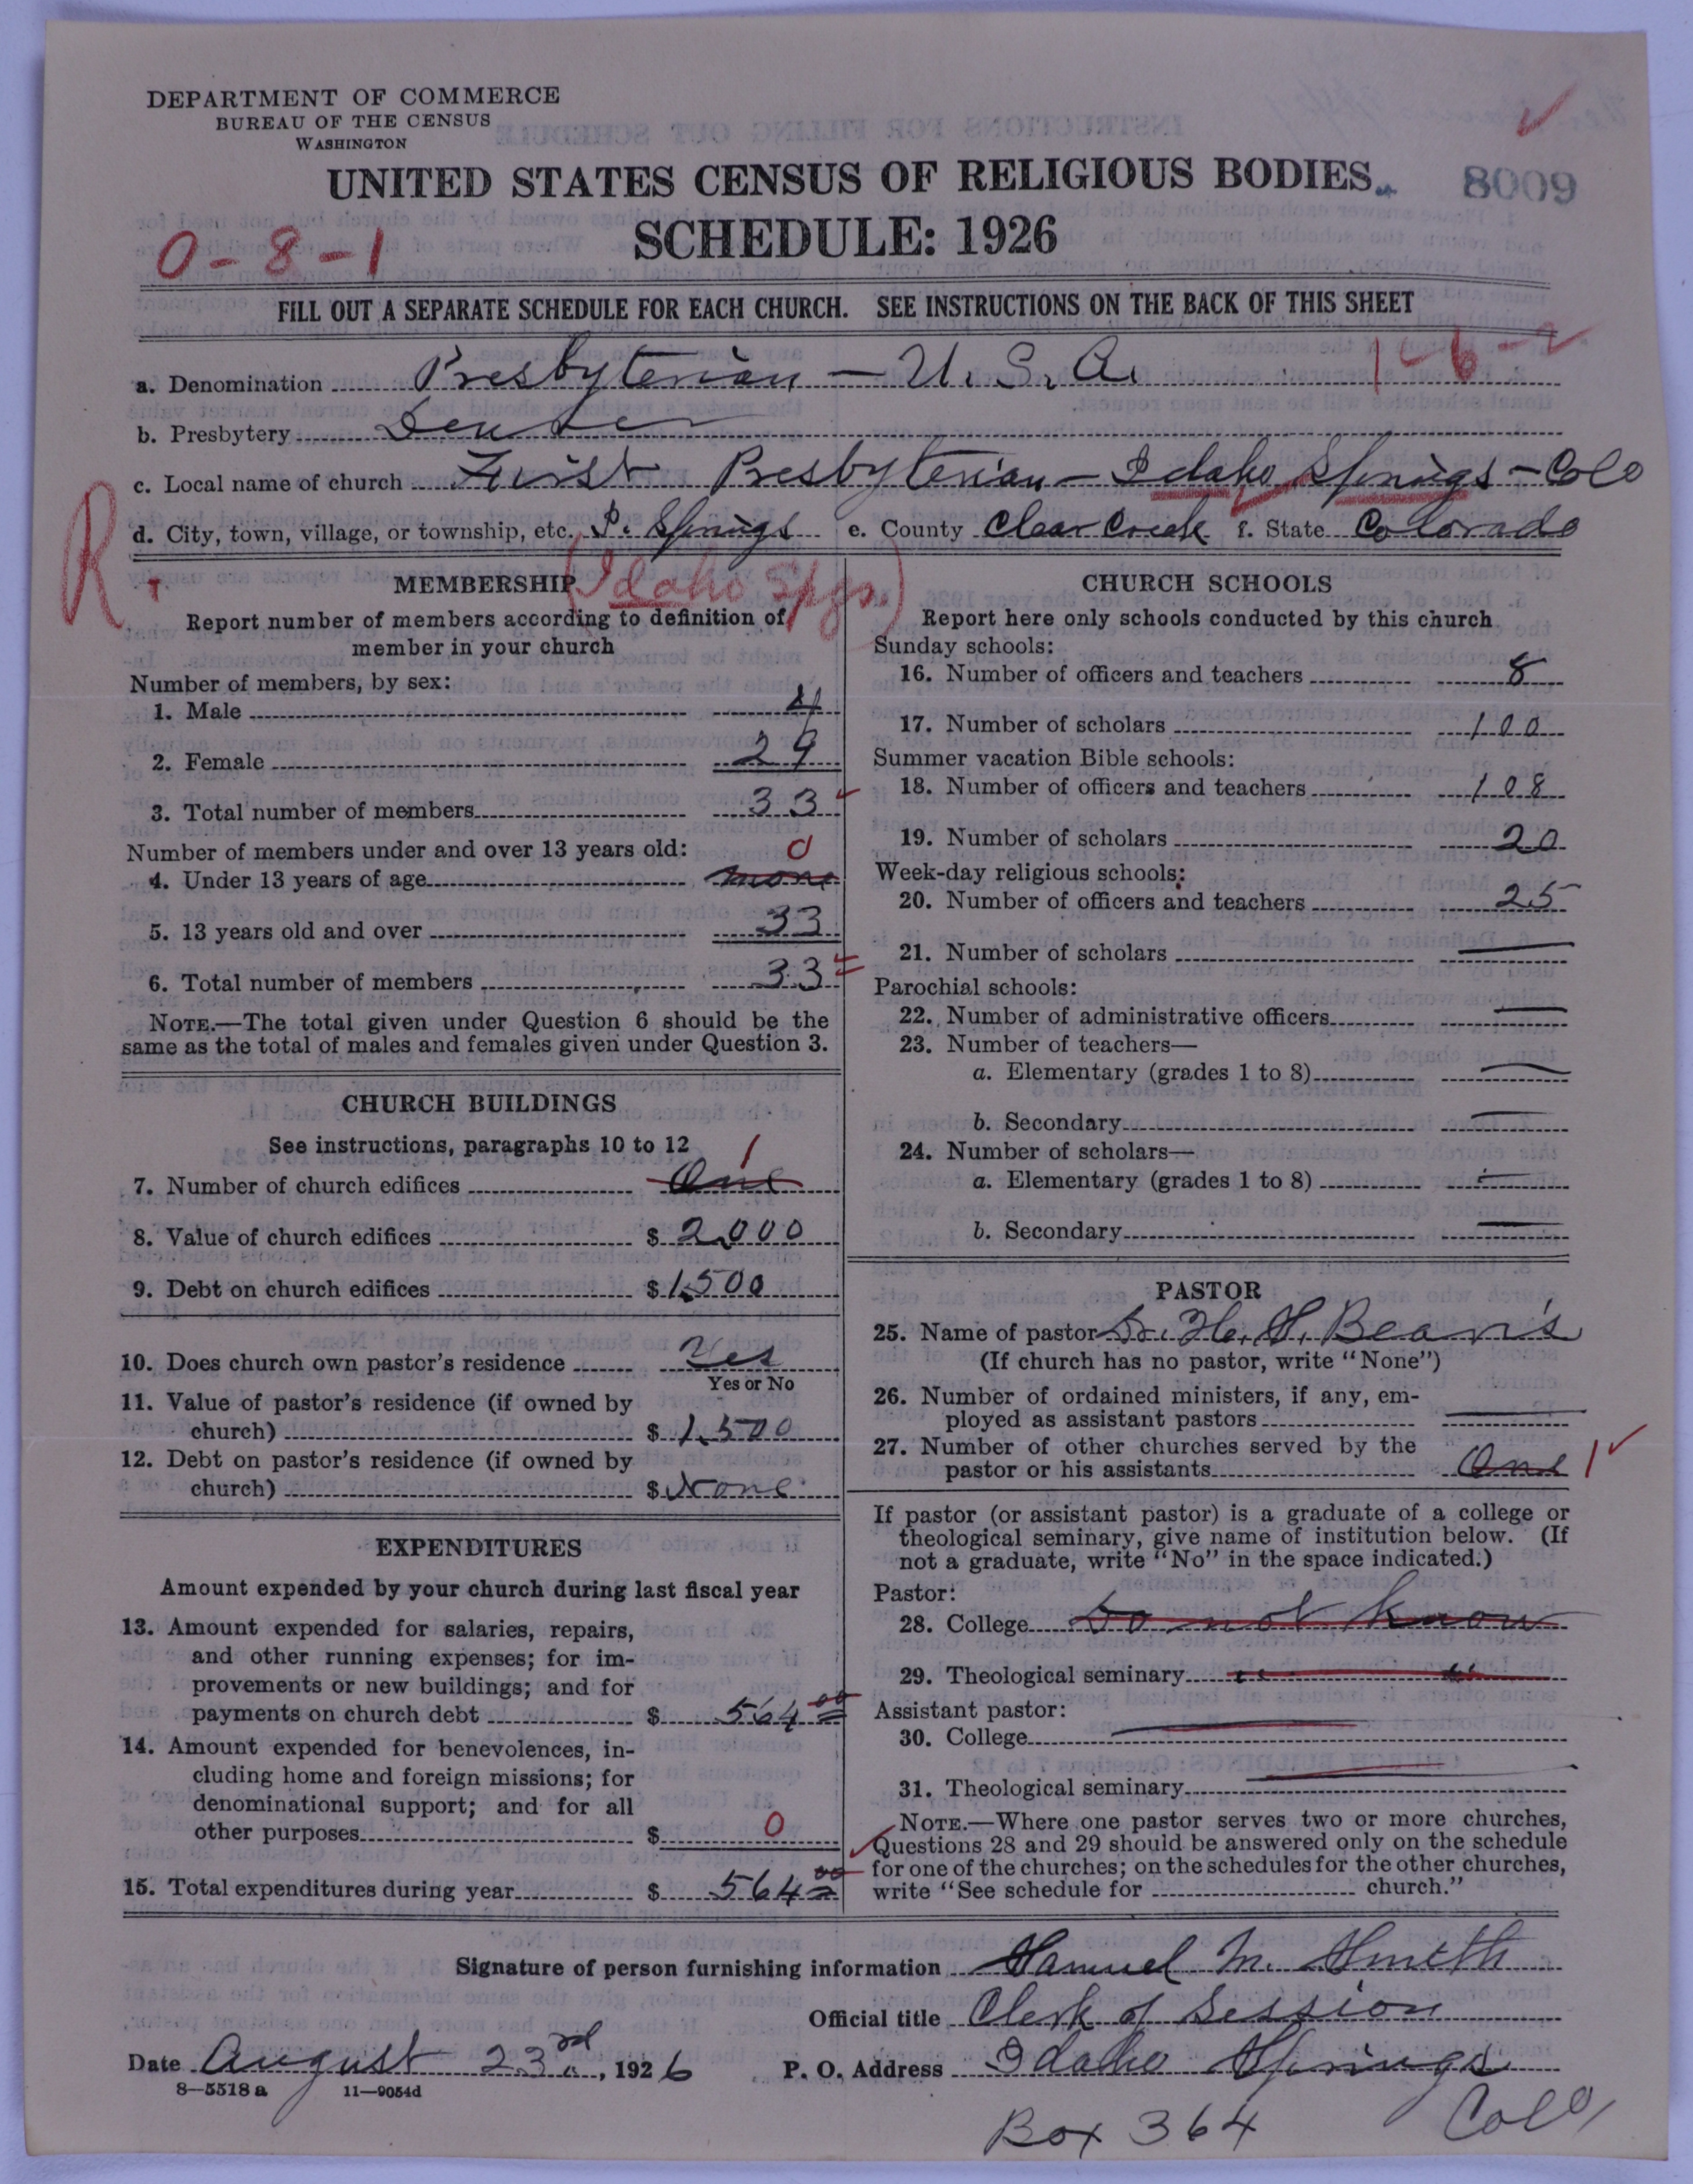 DEPARTMENT OF COMMERCE
BUREAU OF THE CENSUS
WASHINGTON
UNITED STATES CENSUS OF RELIGIOUS BODIES
8009
SCHEDULE: 1926
0-8-1
FILL OUT A SEPARATE SCHEDULE FOR EACH CHURCH. SEE INSTRUCTIONS ON THE BACK OF THIS SHEET
1-6-2
a. Denomination Presbyterian - U.S.A.
b. Presbytery Denver
c. Local name of church First Presbyterian - Idaho Springs - Colo
d. City, town, village, or township, etc. Springs e. County Clear Creek f. State Colorado
R
(Idaho Spgs.)
MEMBERSHIP
Report number of members according to definition of
member in your church
Number of members, by sex:
1. Male 4
2. Female 29
3. Total number of members 33
Number of members under and over 13 years old:
0
4. Under 13 years of age none
5. 13 years old and over 33
6. Total number of members 33
NOTE.—The total given under Question 6 should be the
same as the total of males and females given under Question 3.
CHURCH BUILDINGS
See instructions, paragraphs 10 to 12
1
7. Number of church edifices One
8. Value of church edifices $ 2,000
9. Debt on church edifices $ 1,500
10. Does church own pastor's residence Yes
Yes or No
11. Value of pastor's residence (if owned by
church) $ 1,500
12. Debt on pastor's residence (if owned by
church) $ None
EXPENDITURES
Amount expended by your church during last fiscal year
13. Amount expended for salaries, repairs,
and other running expenses; for im-
provements or new buildings; and for
payments on church debt $ 564 00
14. Amount expended for benevolences, in-
cluding home and foreign missions; for
denominational support; and for all
other purposes $ 0
15. Total expenditures during year $ 564 00
CHURCH SCHOOLS
Report here only schools conducted by this church
Sunday schools:
16. Number of officers and teachers 8
17. Number of scholars 100
Summer vacation Bible schools:
18. Number of officers and teachers 108
19. Number of scholars 20
Week-day religious schools:
20. Number of officers and teachers 25
21. Number of scholars —
Parochial schools:
22. Number of administrative officers —
23. Number of teachers—
a. Elementary (grades 1 to 8) —
b. Secondary —
24. Number of scholars—
a. Elementary (grades 1 to 8) —
b. Secondary —
PASTOR
25. Name of pastor Dr. H. S. Beavis
(If church has no pastor, write "None")
26. Number of ordained ministers, if any, em-
ployed as assistant pastors —
27. Number of other churches served by the
pastor or his assistants One 1
If pastor (or assistant pastor) is a graduate of a college or
theological seminary, give name of institution below. (If
not a graduate, write "No" in the space indicated.)
Pastor:
28. College Do not know
29. Theological seminary " "
Assistant pastor:
30. College —
31. Theological seminary —
NOTE.—Where one pastor serves two or more churches,
Questions 28 and 29 should be answered only on the schedule
for one of the churches; on the schedules for the other churches,
write "See schedule for church."
Signature of person furnishing information Samuel M. Smith
Official title Clerk of Session
Date August 23rd, 1926 P. O. Address Idaho Springs
8-5518 a 11-9054d
Box 364 Colo